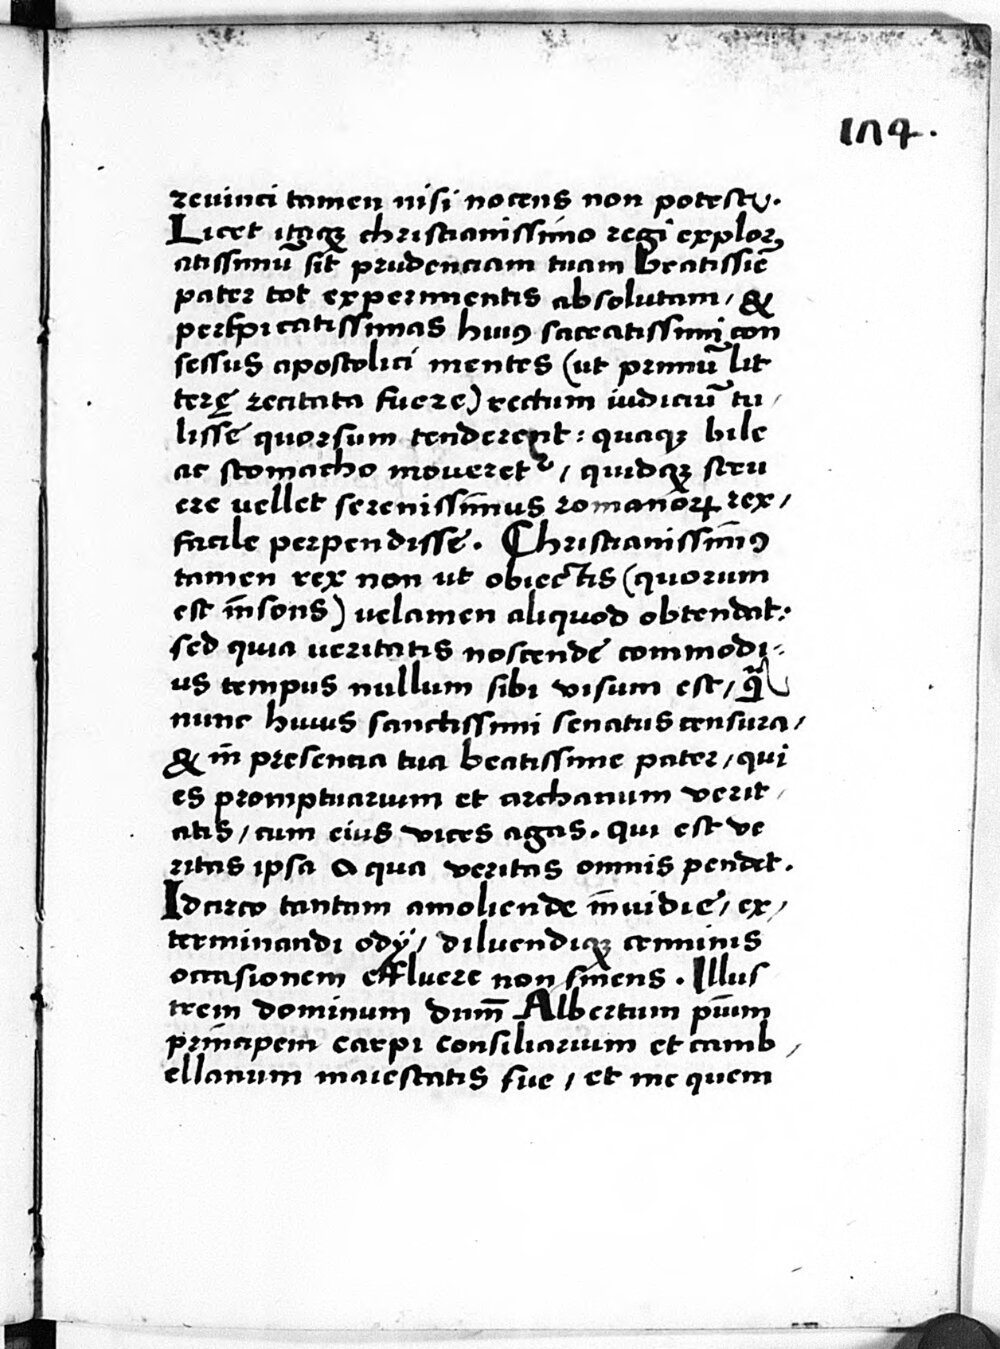 174.
reuinci tamen nisi nocens non potest.
Licet itaqꝫ christianissimo regi explor
atissimū sit prudenciam tuam Beatissiē
pater tot experimentis absolutam / &
perspicatissimas huiꝰ sacratissimi con
sessus apostolici mentes (ut primū lit
terę recitata fuere) rectum iudiciū tu /
lisse quorsum tenderent: quaqꝫ bile
ac stomacho moueretᷣ / quidqꝫ stru
ere vellet serenissīmus romanorꝝ rex /
facile perpendisse. Christianissīmꝰ
tamen rex non ut obiectis (quorum
est īnsons) velamen aliquod obtendat:
sed quia veritatis noscendę commodi-
us tempus nullum sibi visum est / q̃
nunc huius sanctissimi senatus censura /
& īn presencia tua beatissime pater / qui
es promptuarium et archanum verit /
atis / cum eius vices agas. qui est ve
ritas ipsa a qua veritas omnis pendet.
Idarco tantam amoliendę īnuidię / ex /
terminandi odÿ / diluendiqꝫ criminis
occasionem effluere non sinens. Illus
trem dominum dnm̄ Albertum pium
principem carpi consiliarium et camb /
ellanum maiestatis sue / et me quem